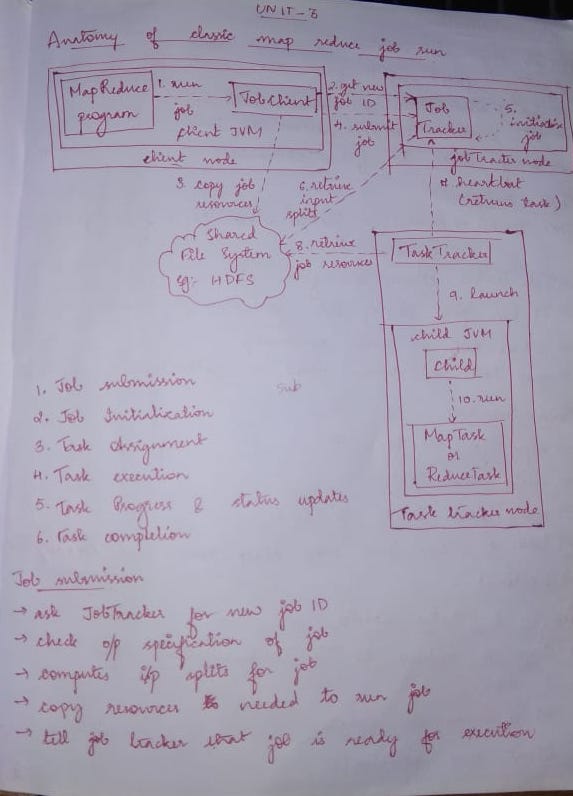 UNIT-3
Anatomy of classic map reduce job run
MapReduce
program
1. run
job
JobClient
client JVM
client node
2. get new
job ID
4. submit
job
Job
Tracker
5.
initialize
job
jobTracter node
3. copy job
resources
6. retrive
input
splits
7. heartbeat
(returns task)
Shared
File System
eg:- HDFS
8. retrive
job resources
TaskTracker
9. launch
child JVM
Child
10. run
MapTask
or
ReduceTask
Task tracker node
1. Job submission
sub
2. Job Initialization
3. Task Assignment
4. Task execution
5. Task Progress & status updates
6. Task completion
Job submission
→ ask JobTracker for new job ID
→ check o/p specification of job
→ computes i/p splits for job
→ copy resources needed to run job
→ tell job tracker that job is ready for execution